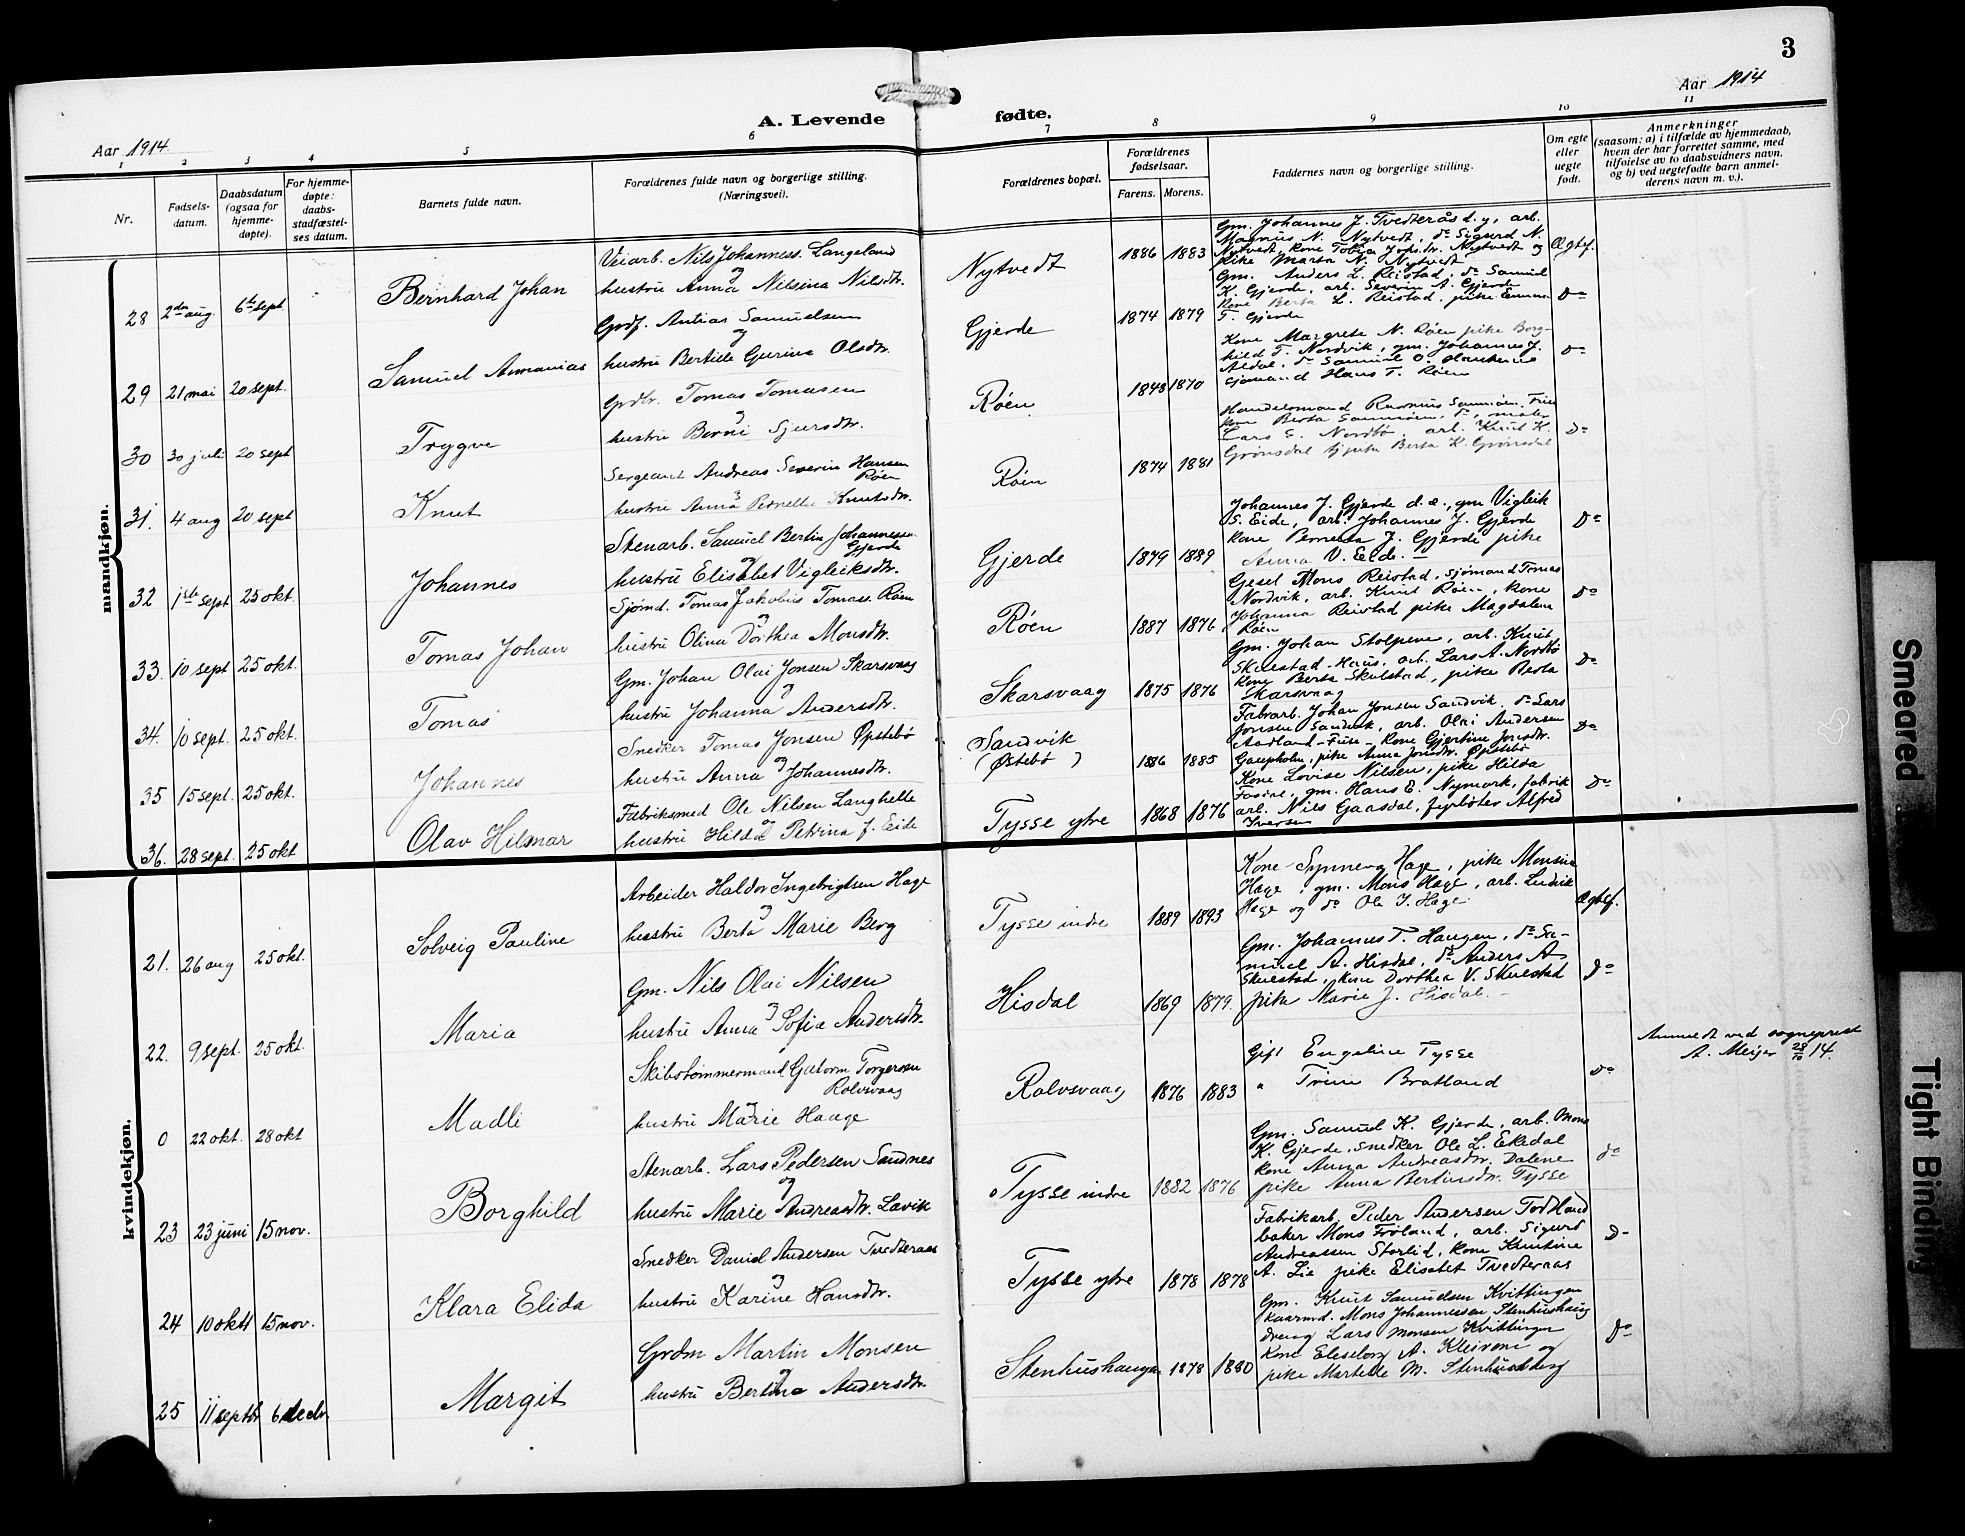 3
Aar 1914
Aar 1914
A. Levende fødte.
1 2 3 4 5 6 7 8 9 10 11
Nr.
Fødsels-
datum.
Daabsdatum
(ogsaa for
hjemme-
døpte).
For hjemme-
døpte:
daabs-
stadfæstel-
ses datum.
Barnets fulde navn.
Forældrenes fulde navn og borgerlige stilling.
(Næringsvei).
Forældrenes bopæl.
Forældrenes
fødselsaar.
Farens. Morens.
Faddernes navn og borgerlige stilling.
Om egte
eller
uegte
født.
Anmerkninger
(saasom: a) i tilfælde av hjemmedaab,
hvem der har forrettet samme, med
tilføielse av to daabsvidners navn.
og b) ved uegtefødte barn anmel-
derens navn m. v.).
mandkjøn.
28 2den aug. 6te sept
Bernhard Johan
Veiarb. Nils Johanness. Langeland
og
hustru Anna Nilsina Nilsdtr.
Nytvedt
1886 1883
Gm. Johannes J. Tvedterås d.y, arb.
Magnus N. Nytvedt, do Sigurd N.
Nytvedt, kone Tobia Johs.dtr. Nytvedt og
pike Marta N. Nytvedt
Ægtef.
29 21 mai 20 sept.
Samuel Annanias
Grdf. Antias Samuelsen
og
hustru Bertille Gurina Olsdtr.
Gjerde
1874 1879
Gm. Anders L. Reistad, do Samuel
K. Gjerde, arb. Severin A. Gjerde
kone Berta L. Reistad, pike Emma
T. Gjerde
Do
30 30 juli 20 sept
Trygve
Grdbr. Tomas Tomasen
og
hustru Berni Sjursdtr.
Røen
1848 1870
Kone Margrete N. Røen pike Borg-
hild T. Nordvik, gm. Johannes J.
Aldal, do Samuel O.
sjømand Hans T. Røen
Do
31. 4 aug 20 sept
Knut
Sergeant Andreas Severin Hansen
Røen
og
hustru Anna Pernella Knutsdtr.
Røen
1874 1881
Handelsmand Rasmus Samnøen, Fuse
kone Berta Samnøen, do, maler
Lars G. Nordbø, arb. Knut K.
Grønsdal pike Berta K. Grønsdal
Do
32 1ste sept 25 okt.
Johannes
Stenarb. Samuel Bertin Johannessen
Gjerde
og
hustru Elisabet Vigleiksdtr.
Gjerde
1879 1889
Johannes J. Gjerde d.e., gm Vigleik
S. Eide, arb. Johannes J. Gjerde
kone Pernella J. Gjerde pike
Anna V. Eide.
Do
33. 10 sept 25 okt.
Tomas Johan
Sjømd. Tomas Jakobus Tomass. Røen
og
hustru Olina Dorthea Monsdtr.
Røen
1887 1876
Gesel Mons Reistad, sjømand Tomas
Nordvik, arb. Knut Røen, kone
Johanna Reistad pike Magdalena
Røen
Do
34. 10 sept. 25 okt.
Tomas
Gm. Johan Olai Jonsen Skarsvaag
og
hustru Johanna Andersdtr.
Skarsvaag
1875 1876
Gm. Johan Stolpene, arb. Knut
Skulestad-Haus, arb. Lars A. Nordbø
kone Berta Skulstad, pike Berta
Skarsvaag
Do
35 15 sept. 25 okt.
Johannes
Snedker Tomas Jonsen Øpstebø
og
hustru Anna Johannesdtr.
Sandvik
(Østebø)
1886 1885
Fabrarb. Johan Jonsen Sandvik, do Lars
Jonsen Sandvik, arb. Olai Andersen
Aadland-Fuse- kone Gjertine Jonsdtr.
Gaupholm, pike Anna Jonsdtr. Øpstebø
Do
36. 28 sept. 25 okt
Olav Hilmar
Fabriksmed Ole Nilsen Langhelle
og
hustru Hilda Petrina f. Eide
Tysse ytre
1868 1876
Kone Lovise Nilsen, pike Hilda
Fosdal, gm. Hans E. Nymark, fabrik
arb. Nils Gaasdal, fyrbøter Alfred
Iversen
Do
kvindekjøn.
21. 26 aug 25 okt.
Solveig Pauline
Arbeider Haldor Ingebrigtsen Hage
og
hustru Berta Marie Berg
Tysse indre
1889 1893
Kone Synneva Hage, pike Monsine
Hage, gm. Mons Hage, arb. Ludvik
Hage og do Ole I. Hage
Ægtef.
22. 9 sept. 25 okt.
Maria
Gm. Nils Olai Nilsen
og
hustru Anna Sofia Andersdtr.
Hisdal
1869 1879.
Gm. Johannes T. Haugen, do Sa-
muel A. Hisdal, do Anders A
Skulestad, kone Dorthea V. Skulestad
pike Marie J. Hisdal. -
Do
0 22 okt. 28 okt
Madli
Skibstømmermand Guttorm Torgersen
Rolvsvaag
og
hustru Marie Haage
Rolvsvaag
1876 1883
Gift Engeline Tysse
" Trine Bratland
Do
Anmeldt ved sogneprest
A. Meijer 28/10 14.
23 23 juni 15 nov.
Borghild
Stenarb. Lars Pedersen Sandnes
og
hustru Marie Andreasdtr. Lavik
Tysse indre
1882 1876
Gm. Samuel K. Gjerde, arb. Mons
K. Gjerde, snedker Ole L. Ekedal
kone Anna Andreasdtr. Dalene
pike Anna Bertinsdtr. Tysse
do
24 10 okt 15 nov.
Klara Elida
Snedker Daniel Andersen Tvedteraas
og
hustru Karine Hansdtr.
Tysse ytre
1878 1878
Fabrikarb. Peder Andersen Todland
baker Mons Frøland, arb. Sigurd
Andreassen Storlid, kone Kristine
A. Lie pike Elisabet Tvedteraas
Do
25 11 septbr 6 decbr
Margit
Grdm Martin Monsen
og
hustru Bertina Andersdtr.
Stenhushaugen
1878 1880
Gm. Knut Samuelsen Kvittingen
kaarmd. Mons Johannessen Stenhushaug
dreng Lars Monsen Kvittingen
kone Eleseborg A. Kleivene og
pike Martella M. Stenhusberg
Do
Smeared
Tight Binding